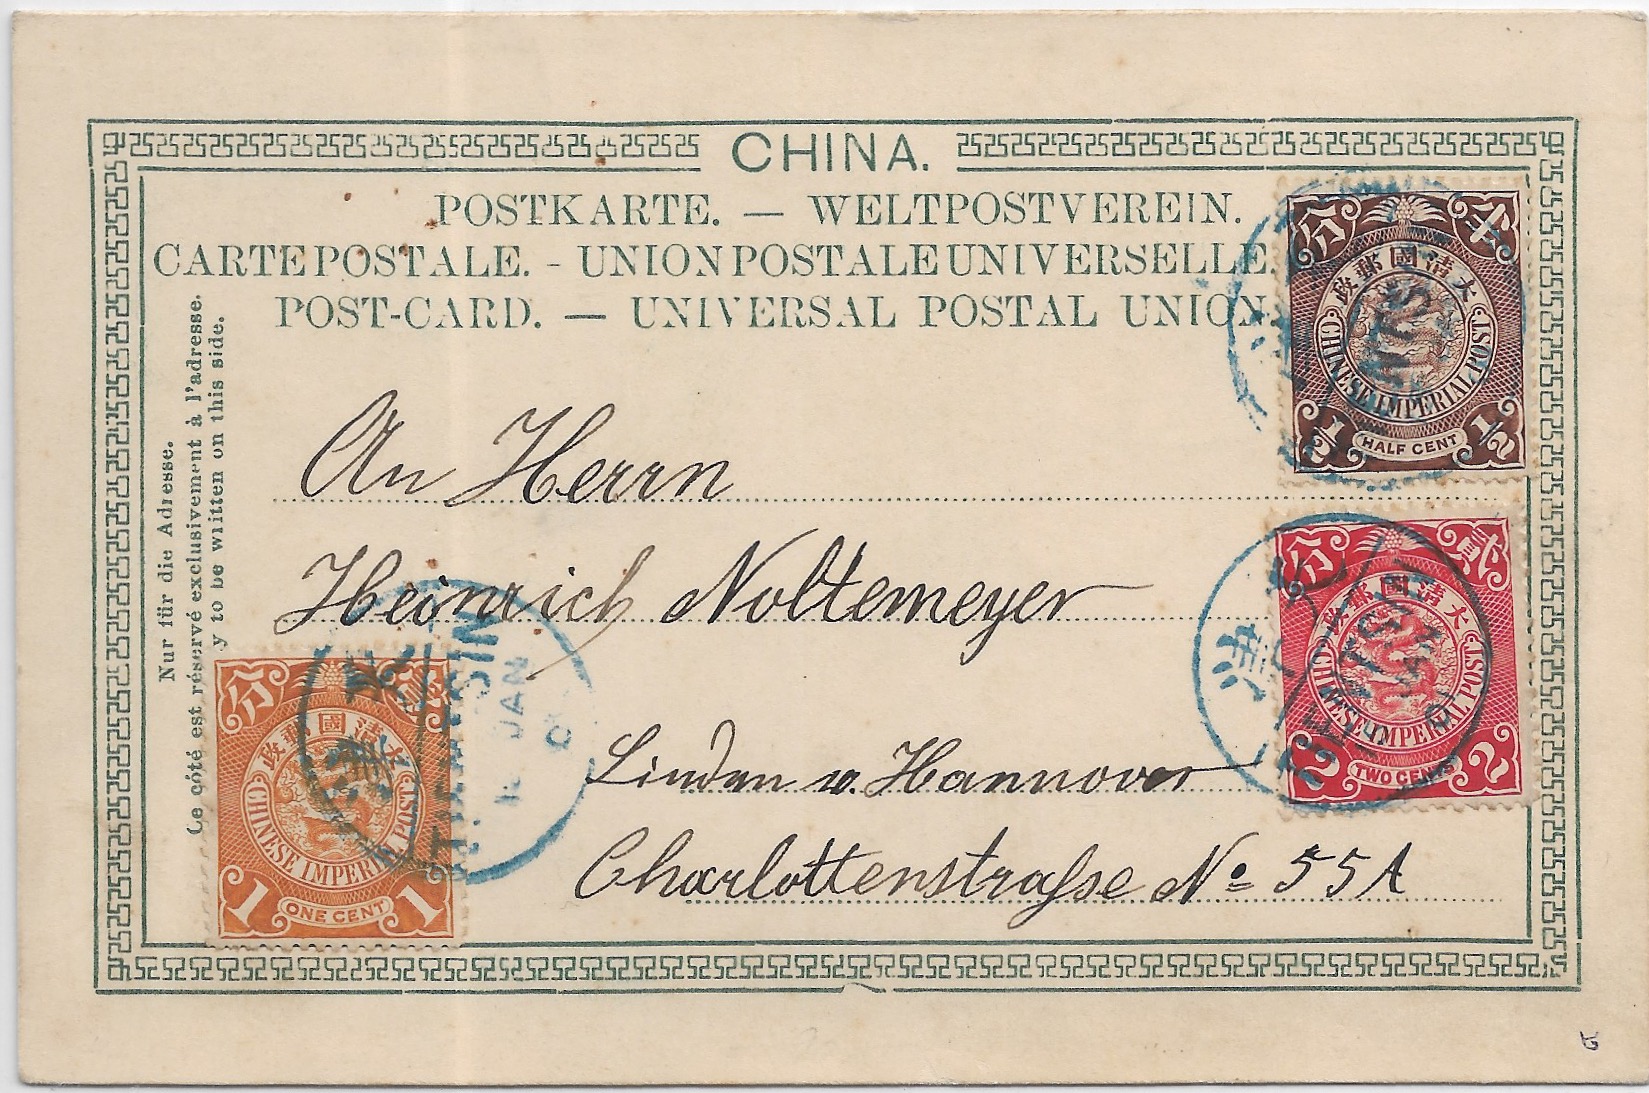 CHINA.
POSTKARTE. — WELTPOSTVEREIN.
CARTE POSTALE. - UNION POSTALE UNIVERSELLE.
POST-CARD. — UNIVERSAL POSTAL UNION.
Nur für die Adresse.
Le côté est réservé exclusivement à l'adresse.
y to be written on this side.
An Herrn
Heinrich Noltemeyer
Linden v. Hannover
Charlottenstraße No 55A
分 半
大清國郵政
CHINESE IMPERIAL POST
1/2 HALF CENT 1/2
分 貳
大清國郵政
CHINESE IMPERIAL POST
2 TWO CENTS 2
TSIN
JAN
分
大清國郵政
CHINESE IMPERIAL POST
1 ONE CENT 1
TSIN
JAN